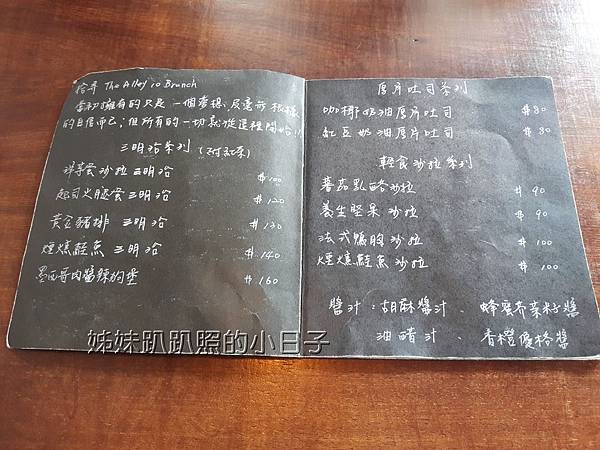 拾弄 The Alley 10 Brunch
當初擁有的只是一個夢想、及毫無根據
的自信而已；但所有的一切就從這裡開始!!
三明治系列 (附紅茶)
洋芋蛋沙拉三明治 #100
起司火腿蛋三明治 #120
黃金豬排 三明治 #130
煙燻鮭魚 三明治 #140
墨西哥肉醬辣狗堡 #160
厚片吐司系列
咖椰奶油厚片吐司 #80
紅豆奶油厚片吐司 #80
輕食沙拉系列
蕃茄乳酪沙拉 #90
養生堅果沙拉 #90
法式鴨胸沙拉 #100
煙燻鮭魚沙拉 #100
醬汁：胡麻醬汁、蜂蜜芥茉籽醬
油醋汁、香橙優格醬
姊妹趴趴照的小日子